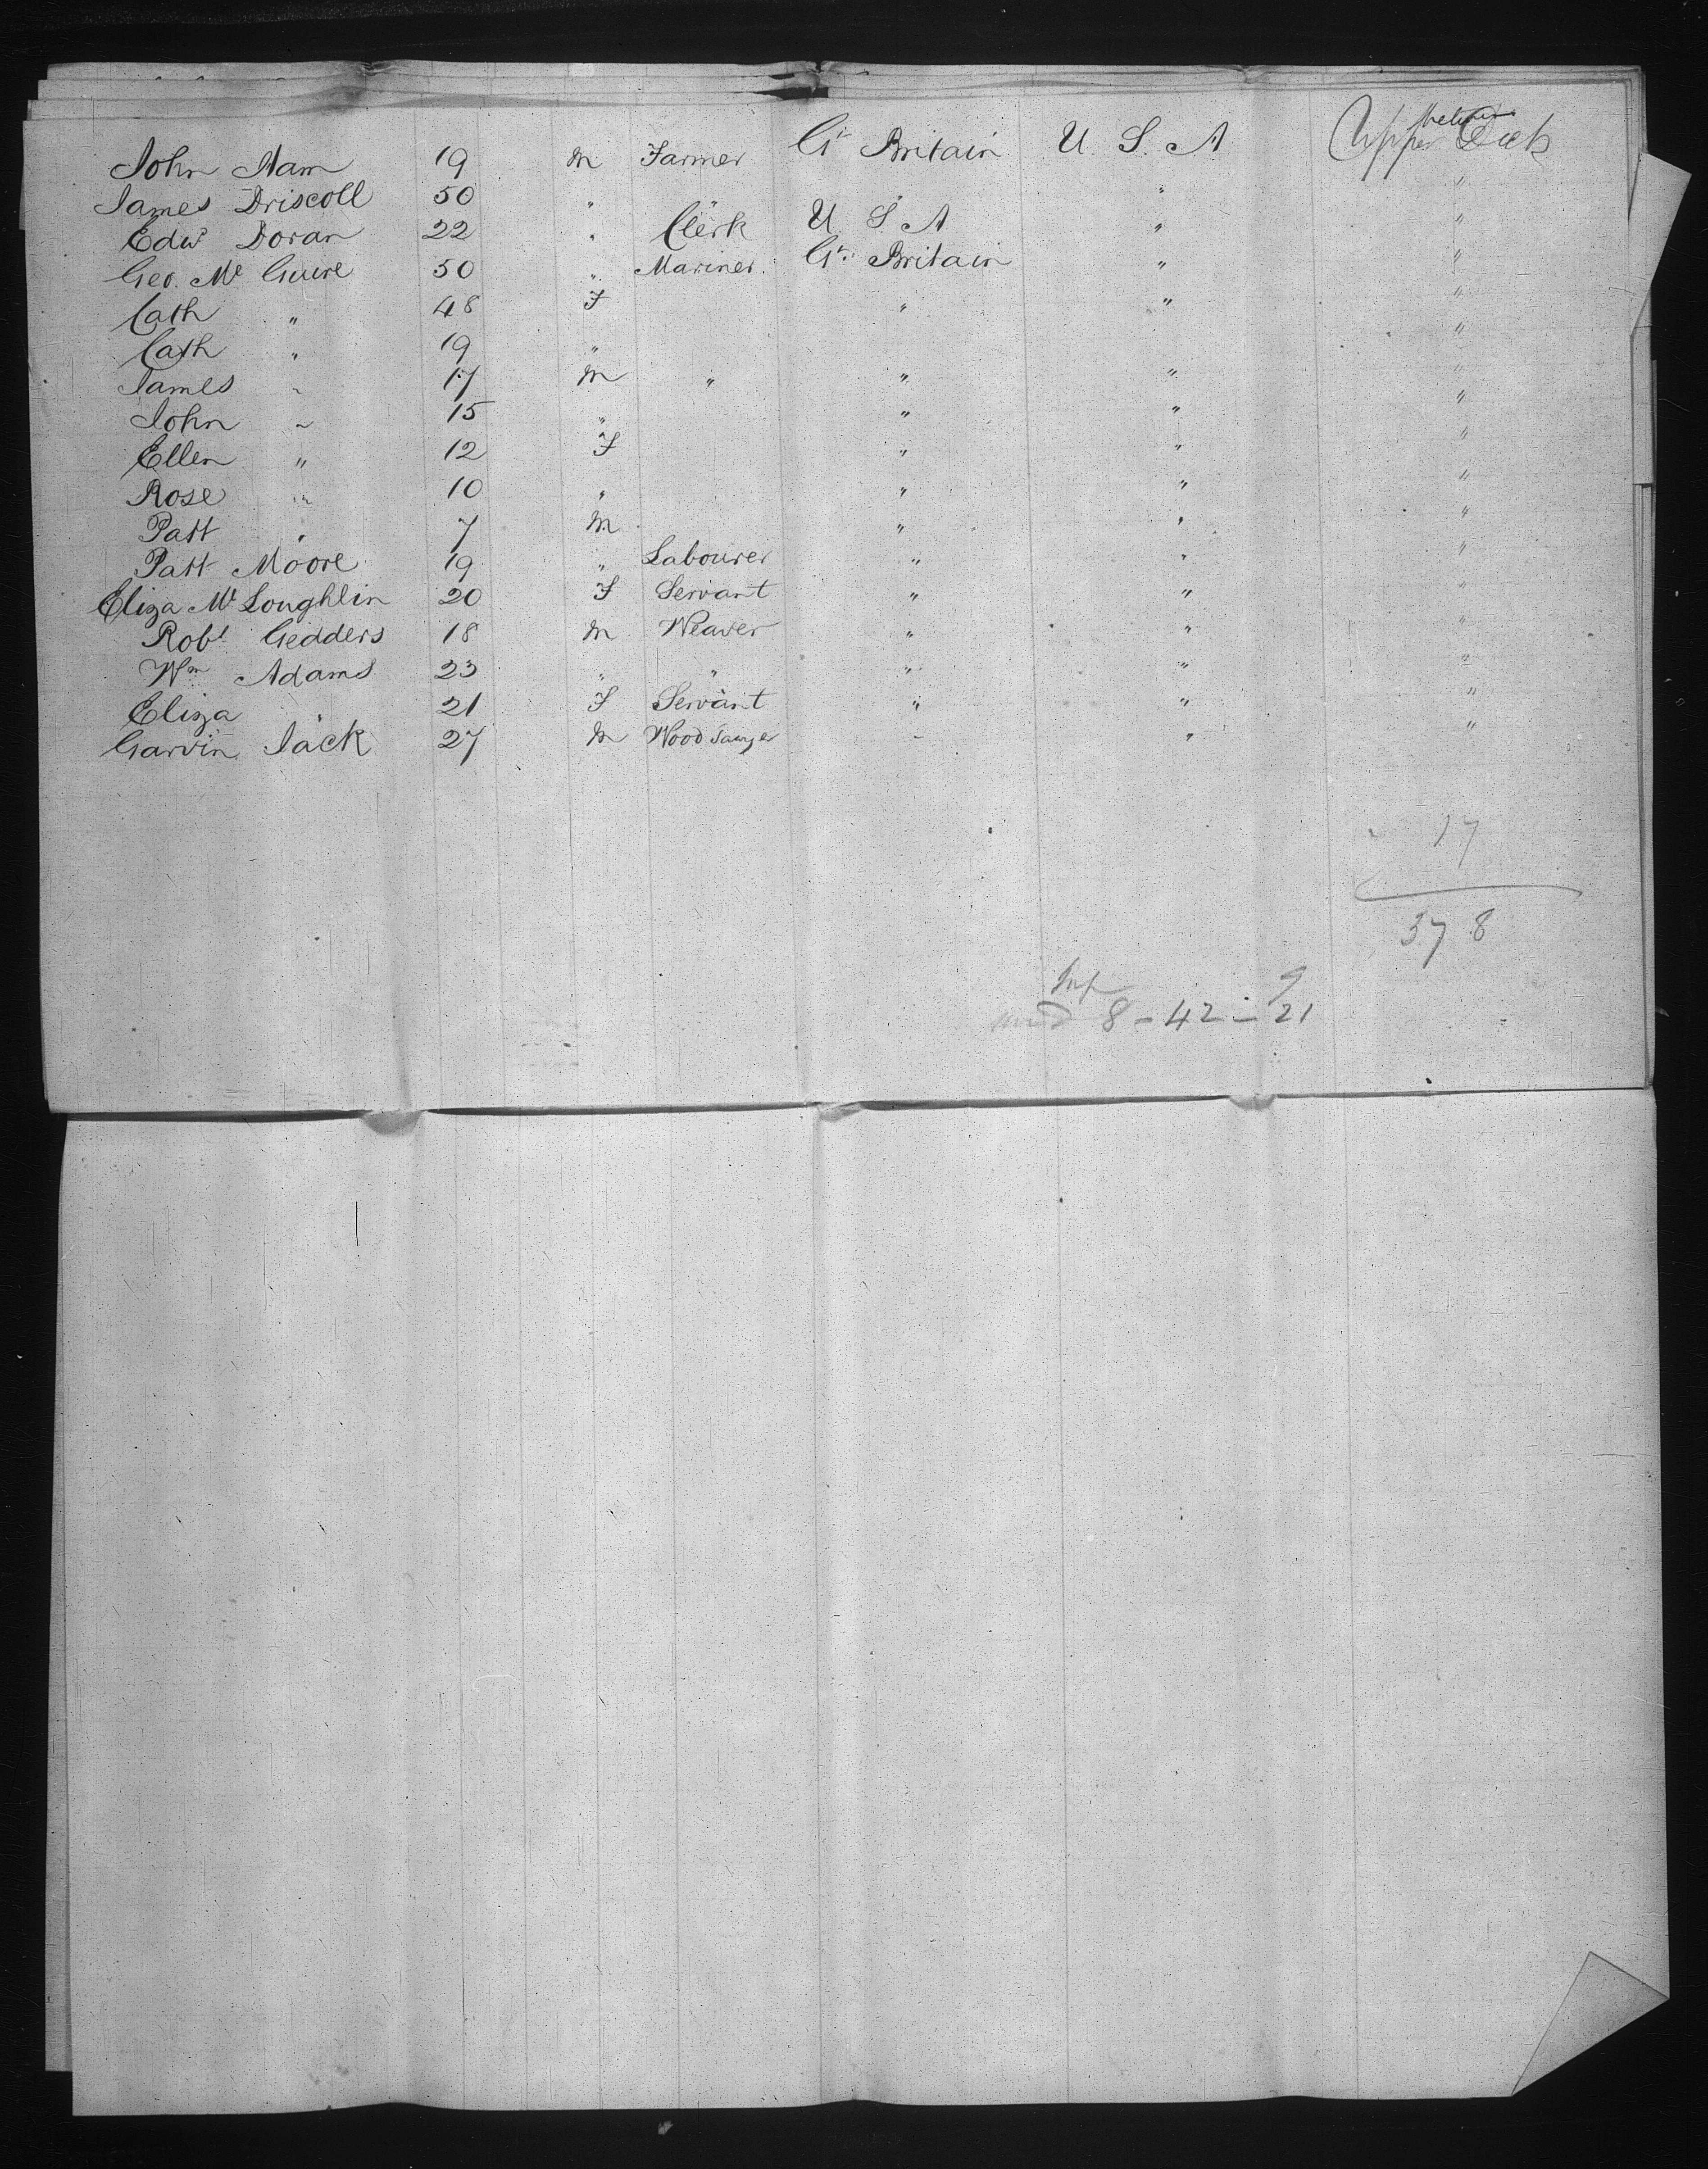 John Nam 19 M Farmer Gt Britain U. S. A Upper between Deck
James Driscoll 50 " " " "
Edwd Doran 22 " Clerk U S A " "
Geo. Mc Guire 50 " Mariner Gt Britain " "
Cath " 48 F " " "
Cath " 19 " "
James " 17 M " " " "
John " 15 " " " "
Ellen " 12 F " " "
Rose " 10 " " " "
Patt " 7 M " " "
Patt Moore 19 " Labourer " " "
Eliza Mc Loughlin 20 F Servant " " "
Robt Gedders 18 M Weaver " " "
Wm Adams 23 " " " " "
Eliza " 21 F Servant " " "
Garvin Jack 27 M Wood Sawyer " " "
17
378
Inf 9
8 - 42 - 21